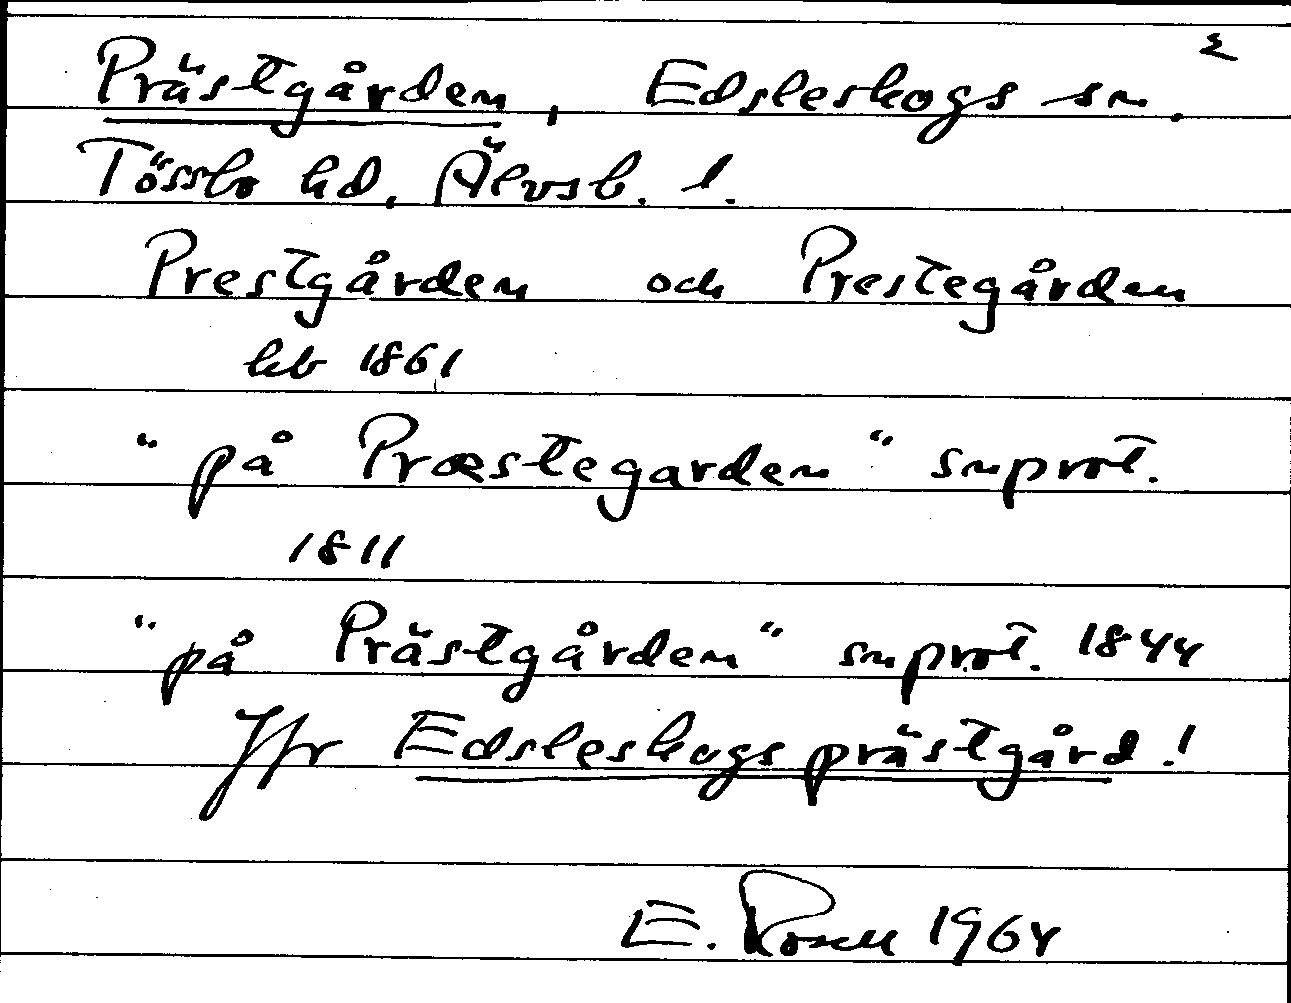 Prästgården, Edsleskogs sn.
Tössbo hd, Älvsb. l.
Prestgården och Prestegården
hb 1861
"på Præstegarden" snprot.
1811
"på Prästgården" snprot. 1844
Jfr Edsleskogs prästgård!
E. Rosell 1964